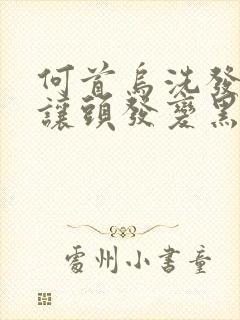 何首烏洗發
讓頭發變黑
處州小書童